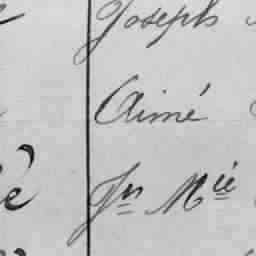 Joseph
Aimé
Jn Mie